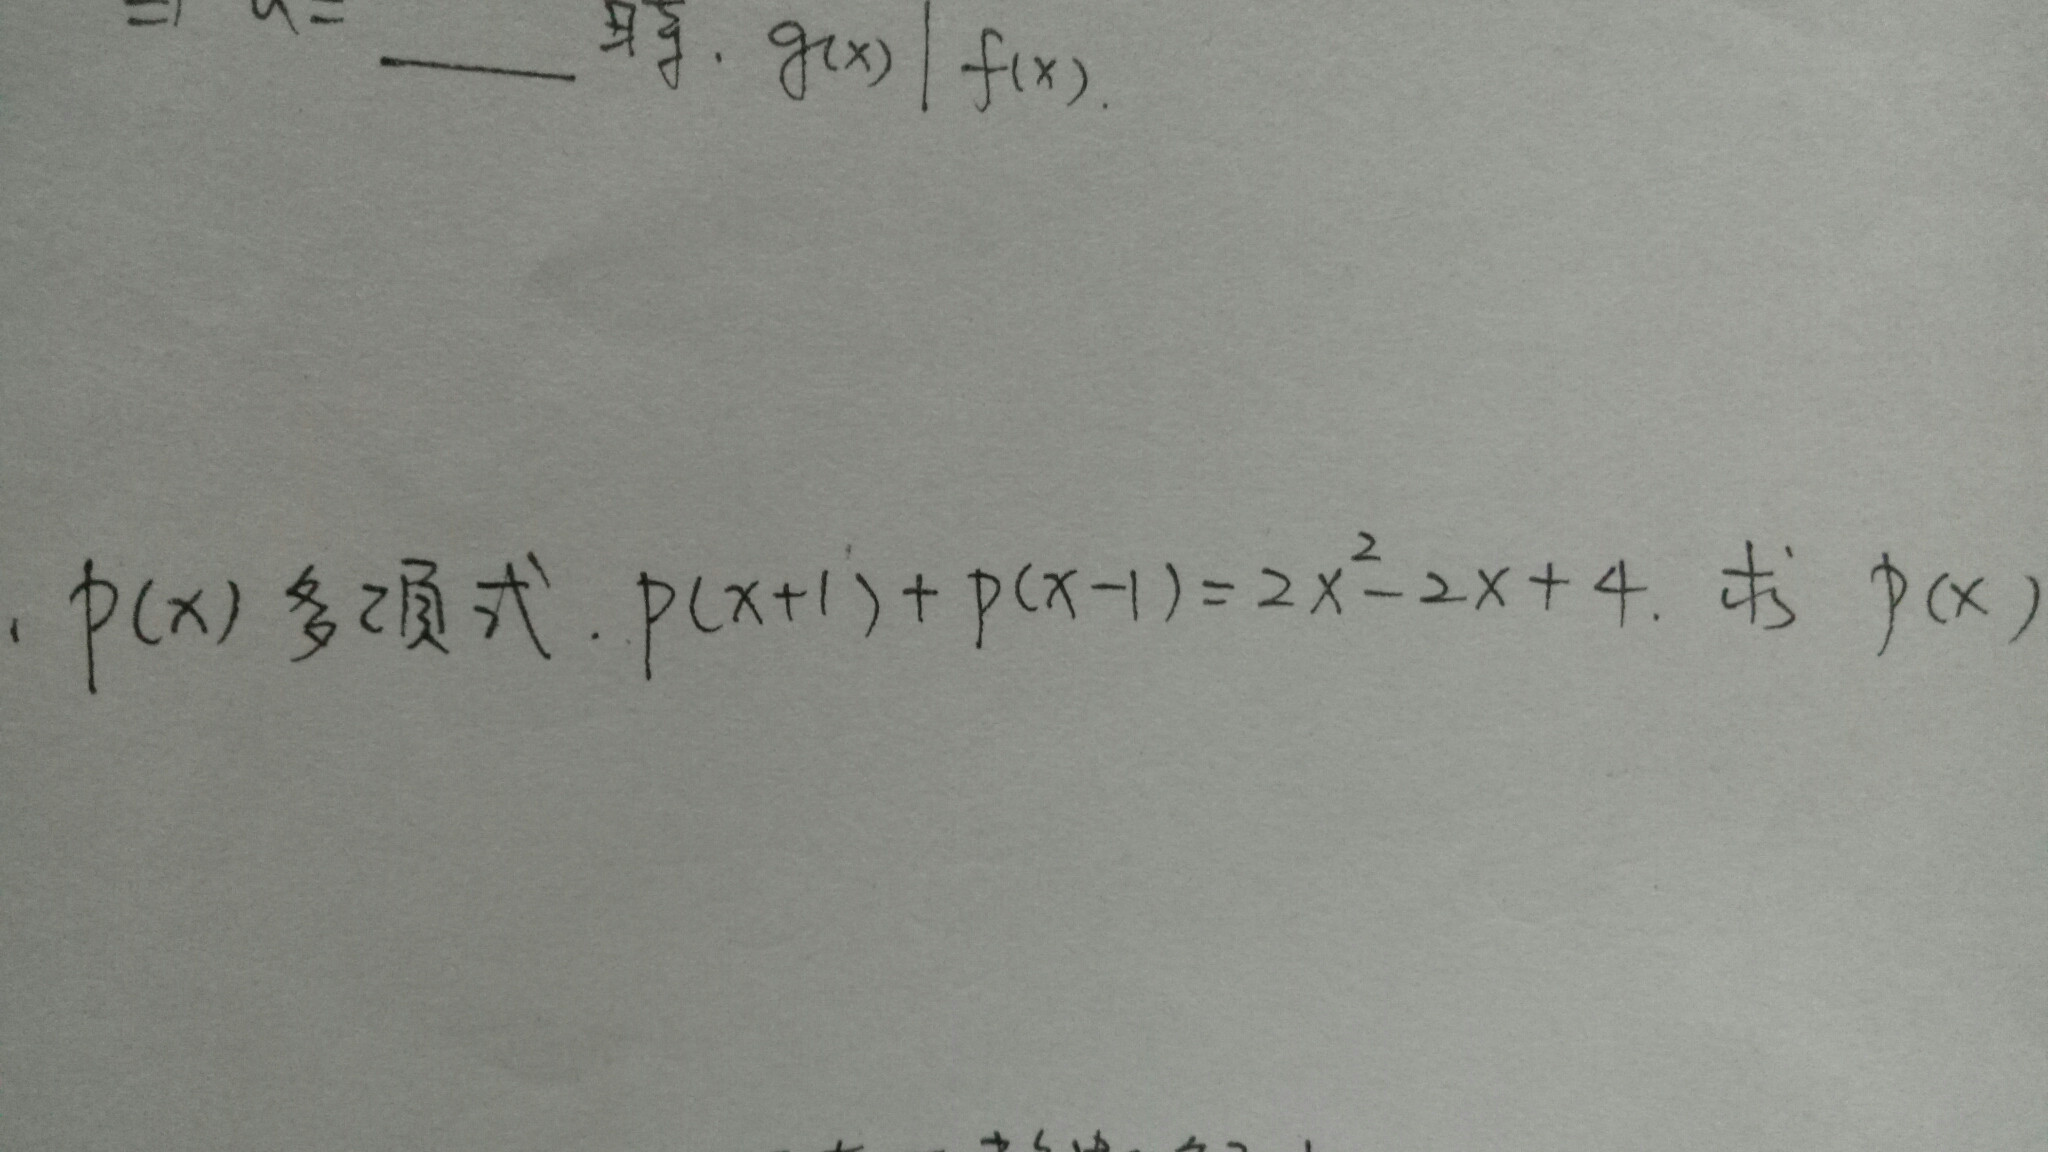 g(x) | f(x).
p(x) 多项式. p(x+1) + p(x-1) = 2x² - 2x + 4. 求 p(x)